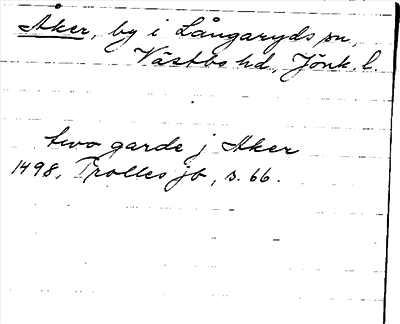 Åker, by i Långaryds sn,
Västbo hd, Jönk. l.
two garde j Aker
1498, Trolles jb, s. 66.